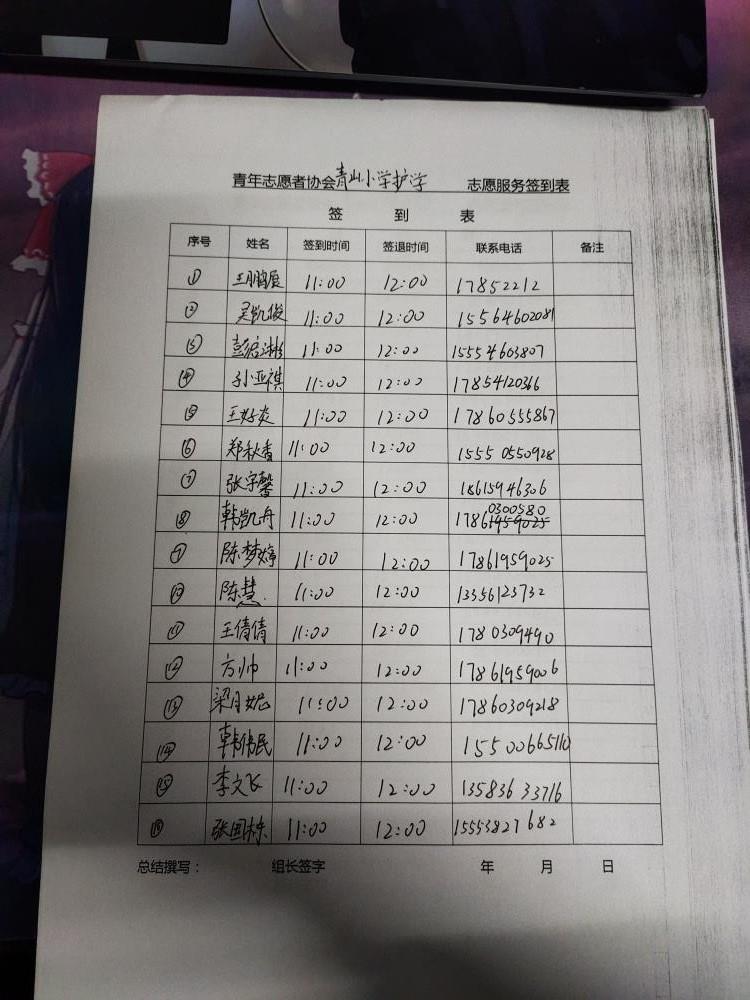 青年志愿者协会青山小学护学 志愿服务签到表
签 到 表
序号 姓名 签到时间 签退时间 联系电话 备注
① 王鹏辰 11:00 12:00 17852212
② 吴凯俊 11:00 12:00 15564602081
③ 11:00 12:00 15554603807
④ 孙亚祺 11:00 12:00 17854120366
⑤ 王好炎 11:00 12:00 17860555867
⑥ 郑秋香 11:00 12:00 15550550928
⑦ 张宇馨 11:00 12:00 18615946306
⑧ 韩凯丹 11:00 12:00 17861959025 0300580
⑨ 陈梦婷 11:00 12:00 17861959025
⑩ 陈慧 11:00 12:00 13356123732
⑪ 王倩倩 11:00 12:00 1780309490
⑫ 方帅 11:00 12:00 17861959006
⑬ 梁月妮 11:00 12:00 17860309218
⑭ 韩伟民 11:00 12:00 15500665110
⑮ 李文飞 11:00 12:00 13583633716
⑯ 张国栋 11:00 12:00 15553827682
总结撰写： 组长签字 年 月 日